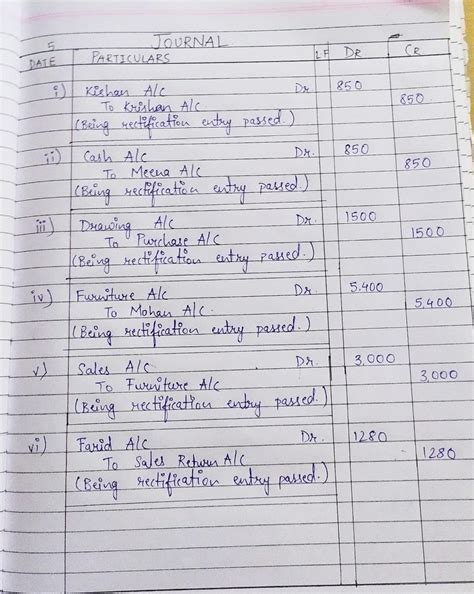 5 JOURNAL
DATE PARTICULARS LF DR CR
i) Kishan A/c Dr 850
To Krishan A/c 850
(Being rectification entry passed.)
ii) Cash A/c Dr. 850
To Meena A/c 850
(Being rectification entry passed.)
iii) Drawing A/c Dr. 1500
To Purchase A/c 1500
(Being rectification entry passed.)
iv) Furniture A/c Dr 5,400
To Mohan A/c. 5,400
(Being rectification entry passed.)
v) Sales A/c Dr. 3,000
To Furniture A/c 3,000
(Being rectification entry passed.)
vi) Farid A/c Dr. 1280
To Sales Return A/c 1280
(Being rectification entry passed.)